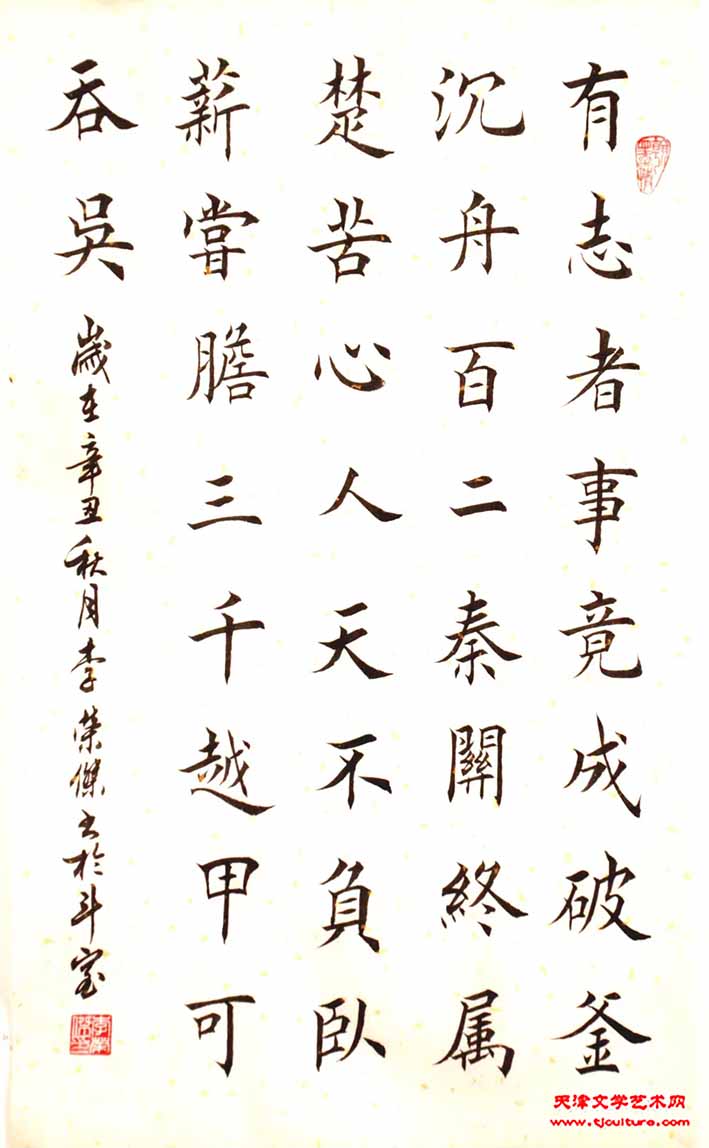 有志者事竟成破釜
沉舟百二秦關終属
楚苦心人天不負臥
薪嘗膽三千越甲可
吞吳
歲在辛丑秋月李榮傑书於斗室
天津文学艺术网
www.tjculture.com